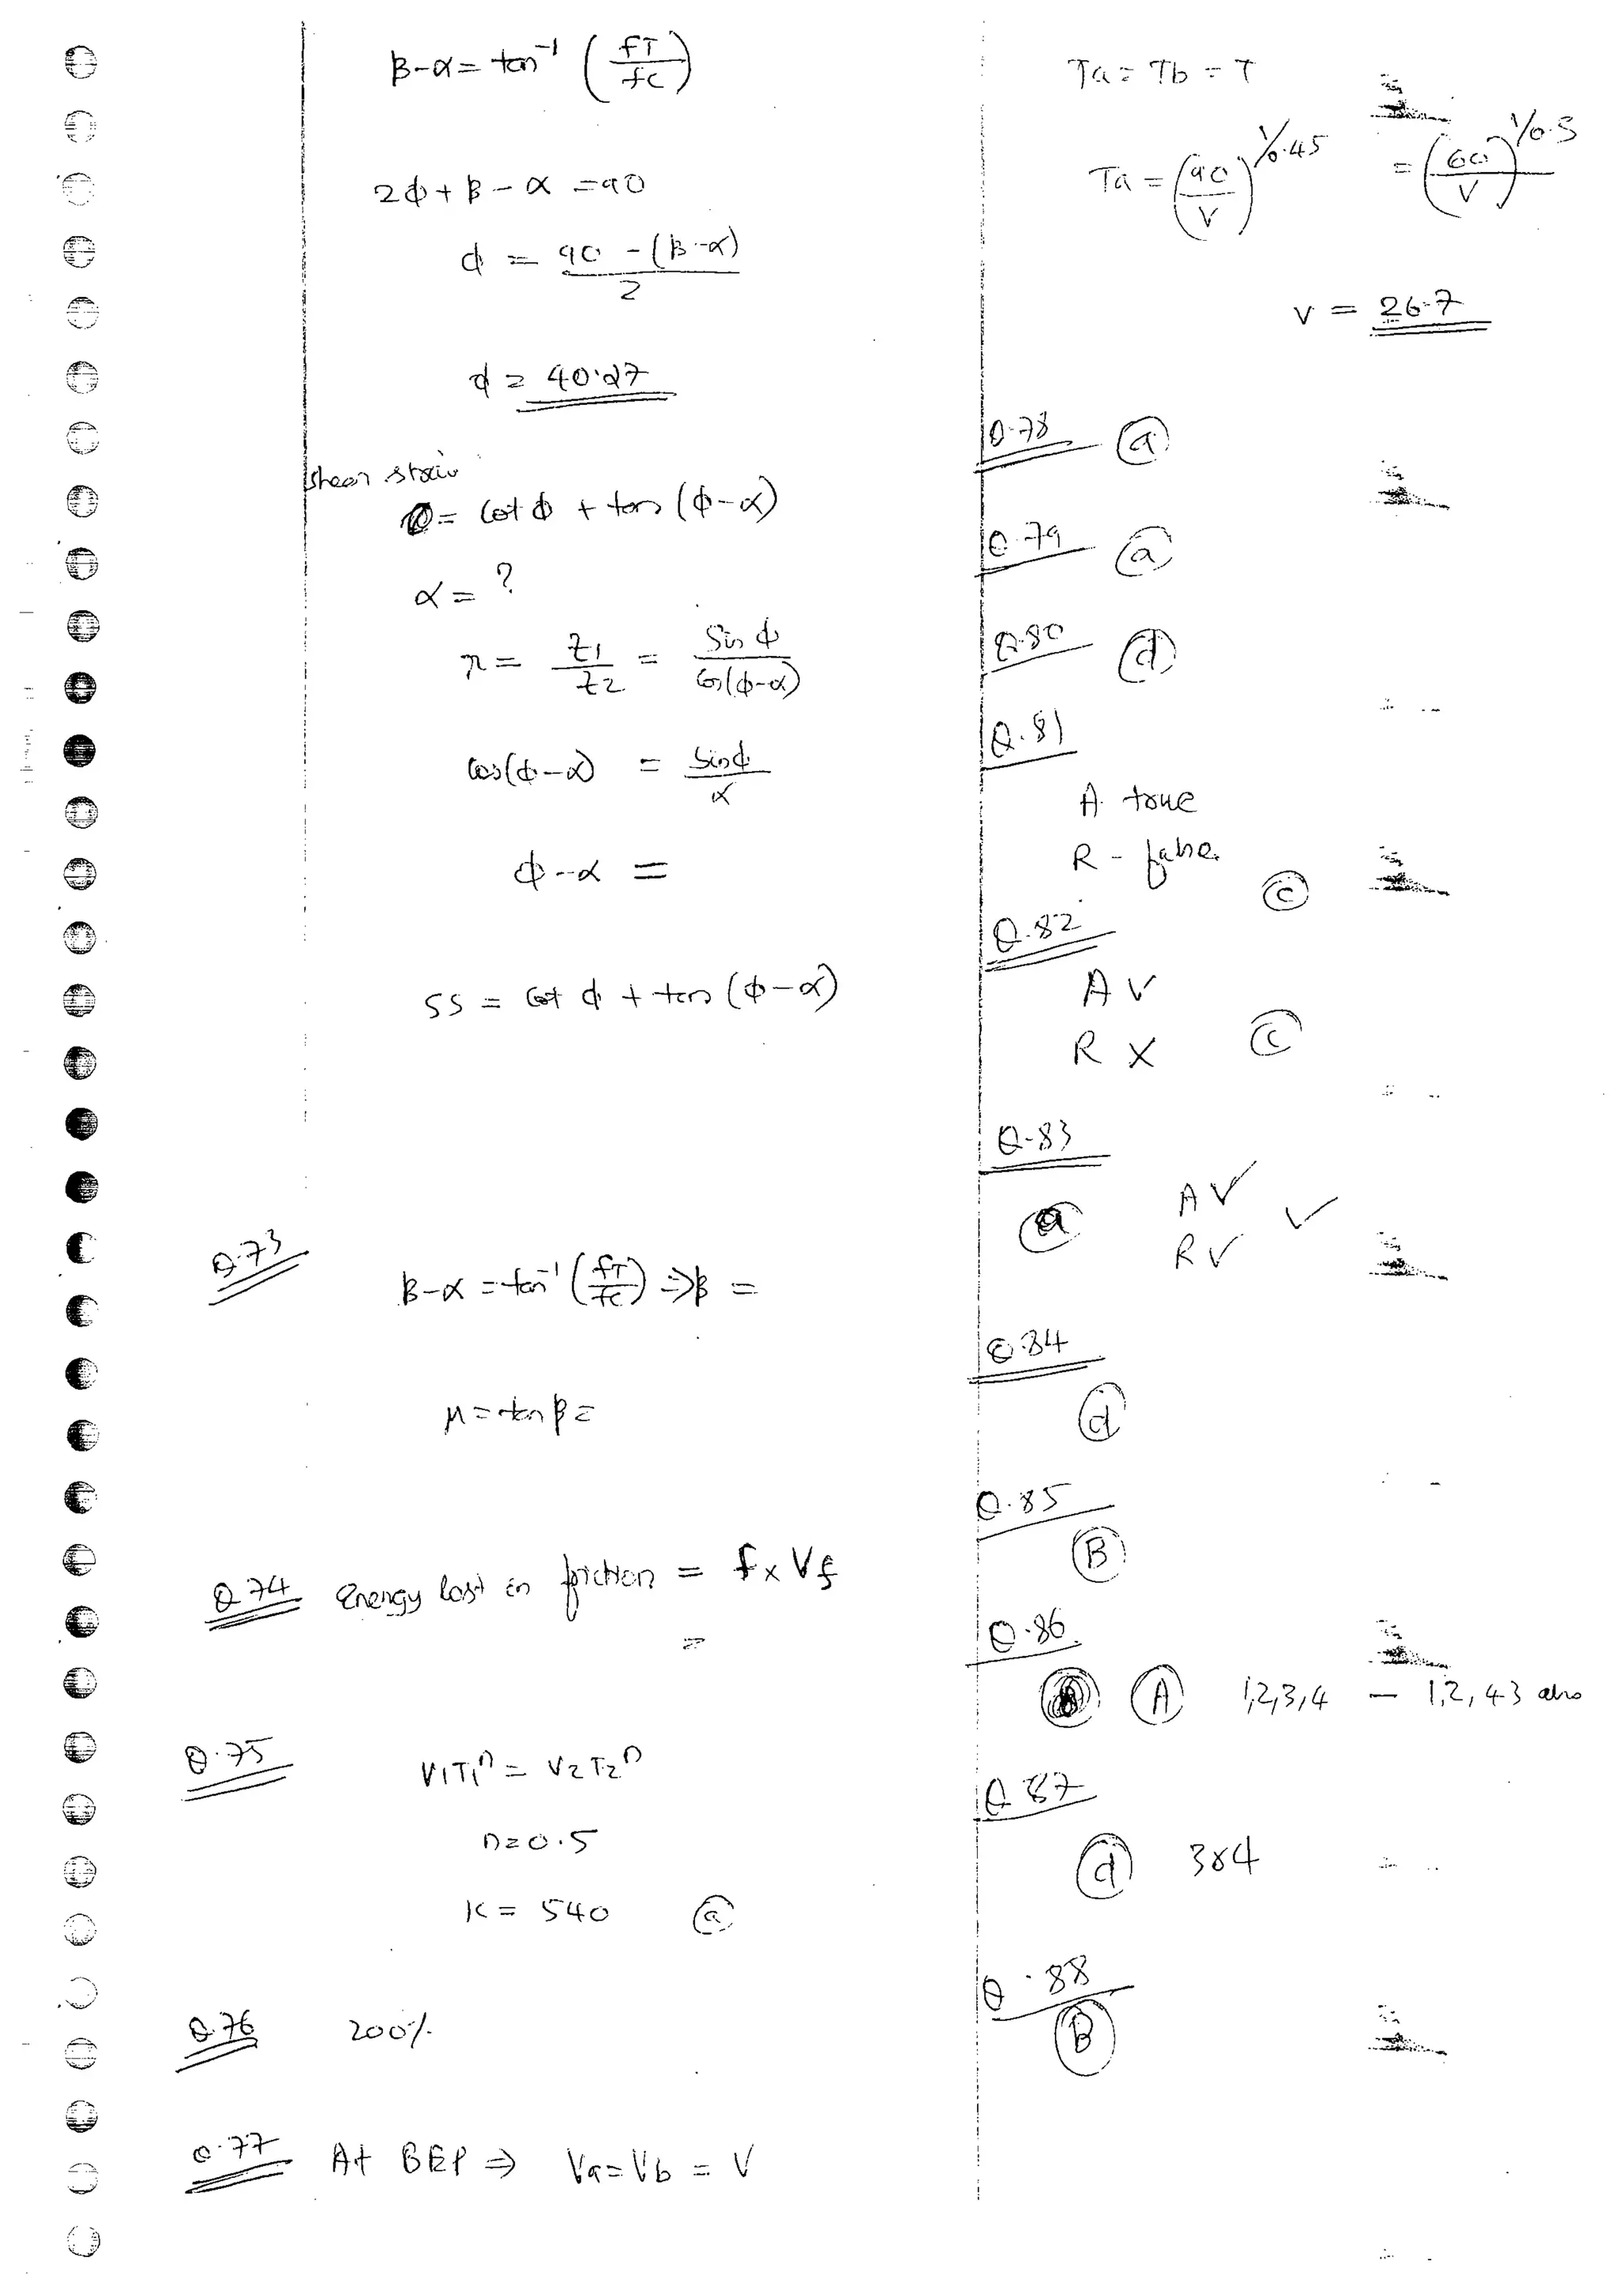 β-α = tan⁻¹ (fT/fc)
2ϕ + β - α = 90
ϕ = 90 - (β-α) / 2
ϕ = 40.27
shear strain
= cot ϕ + tan (ϕ-α)
α = ?
r = t1/t2 = Sin ϕ / Cos(ϕ-α)
Cos(ϕ-α) = Sinϕ / r
ϕ-α =
SS = Cot ϕ + tan (ϕ-α)
Q.73
β-α = tan⁻¹ (fT/fc) ⇒ β =
μ = tan β =
Q.74 Energy lost in friction = f x Vf
=
Q.75
V1T1ⁿ = V2T2ⁿ
n = 0.5
K = 540 (a)
Q.76 200%
Q.77 At BEP ⇒ Va = Vb = V
Ta = Tb = T
Ta = (90/V)^1/0.45 = (60/V)^1/0.3
V = 26.7
Q.78 (a)
Q.79 (a)
Q.80 (d)
Q.81
A. true
R - false
(c)
Q.82
A ✓
R X (c)
Q.83
A ✓
(a) ✓
R ✓
Q.84
(d)
Q.85
(B)
Q.86
(A) 1,2,3,4 - 1,2,43 also
Q.87
(d) 384
Q.88
(B)